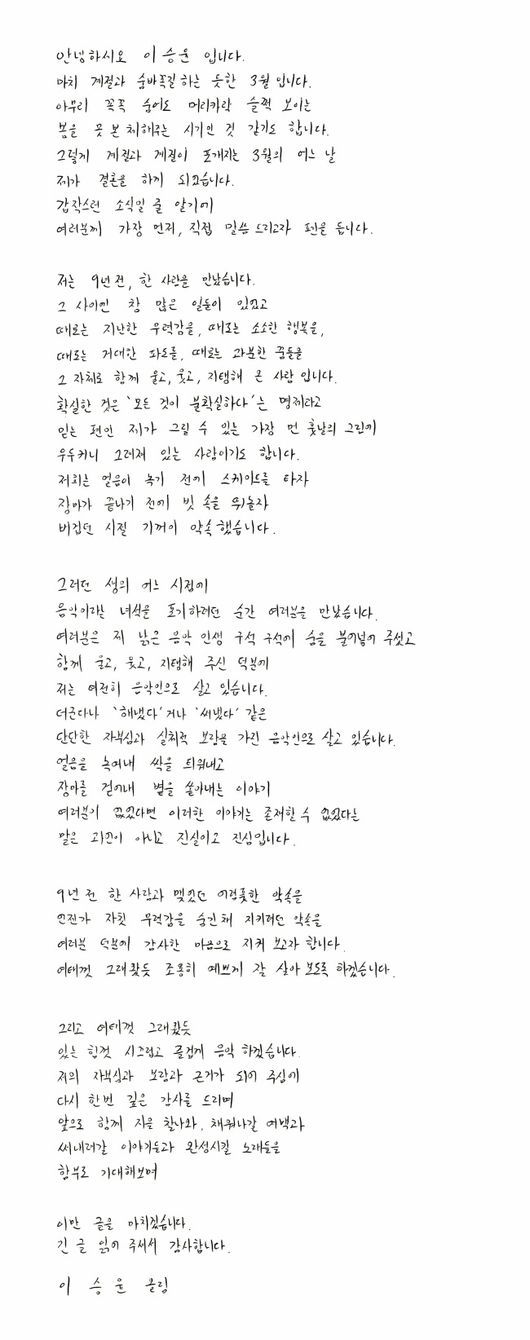 안녕하시오 이승윤 입니다.
마치 계절과 숨바꼭질하는 듯한 3월입니다.
아무리 꼭꼭 숨어도 머리카락 슬쩍 보이는
봄을 못 본 체해주는 시기인 것 같기도 합니다.
그렇게 계절과 계절이 포개지는 3월의 어느 날
제가 결혼을 하게 되었습니다.
갑작스런 소식일 줄 알기에
여러분께 가장 먼저, 직접 말씀드리고자 펜을 듭니다.
저는 9년 전, 한 사람을 만났습니다.
그 사이엔 참 많은 일들이 있었고
때로는 지난한 무력감을, 때로는 소소한 행복을,
때로는 거대한 파도를, 때로는 과분한 꿈들을
그 자체로 함께 울고, 웃고, 지탱해 온 사람입니다.
확실한 것은 '모든 것이 불확실하다'는 명제라고
믿는 편인 제가 그릴 수 있는 가장 먼 훗날의 그림에
우두커니 그려져 있는 사람이기도 합니다.
저희는 얼음이 녹기 전에 스케이트를 타자
장마가 끝나기 전에 빗 속을 뛰놀자
버겁던 시절 기꺼이 약속했습니다.
그러던 생의 어느 시점에
음악이라는 녀석을 포기하려던 순간 여러분을 만났습니다.
여러분은 제 낡은 음악 인생 구석 구석에 숨을 불어넣어 주셨고
함께 울고, 웃고, 지탱해 주신 덕분에
저는 여전히 음악인으로 살고 있습니다.
더군다나 '해냈다'거나 '써냈다' 같은
단단한 자부심과 실체적 보람을 가진 음악인으로 살고 있습니다.
얼음을 녹여내 싹을 틔워내고
장마를 걷어내 볕을 쏟아내는 이야기
여러분이 없었다면 이러한 이야기는 존재할 수 없었다는
말은 괴언이 아니고 진실이고 진심입니다.
9년 전 한 사람과 맺었던 어렴풋한 약속을
언젠가 자칫 무력감을 숨긴 채 지키려던 약속을
여러분 덕분에 감사한 마음으로 지켜 보고자 합니다.
여태껏 그래왔듯 조용히 예쁘게 잘 살아 보도록 하겠습니다.
그리고 여태껏 그래왔듯
있는 힘껏 시끄럽고 즐겁게 음악 하겠습니다.
저의 자부심과 보람과 근거가 되어 주심에
다시 한번 깊은 감사를 드리며
앞으로 함께 지을 찰나와, 채워나갈 여백과
써내려갈 이야기들과 완성시킬 노래들을
함부로 기대해보며
이만 글을 마치겠습니다.
긴 글 읽어 주셔서 감사합니다.
이 승 윤 올림